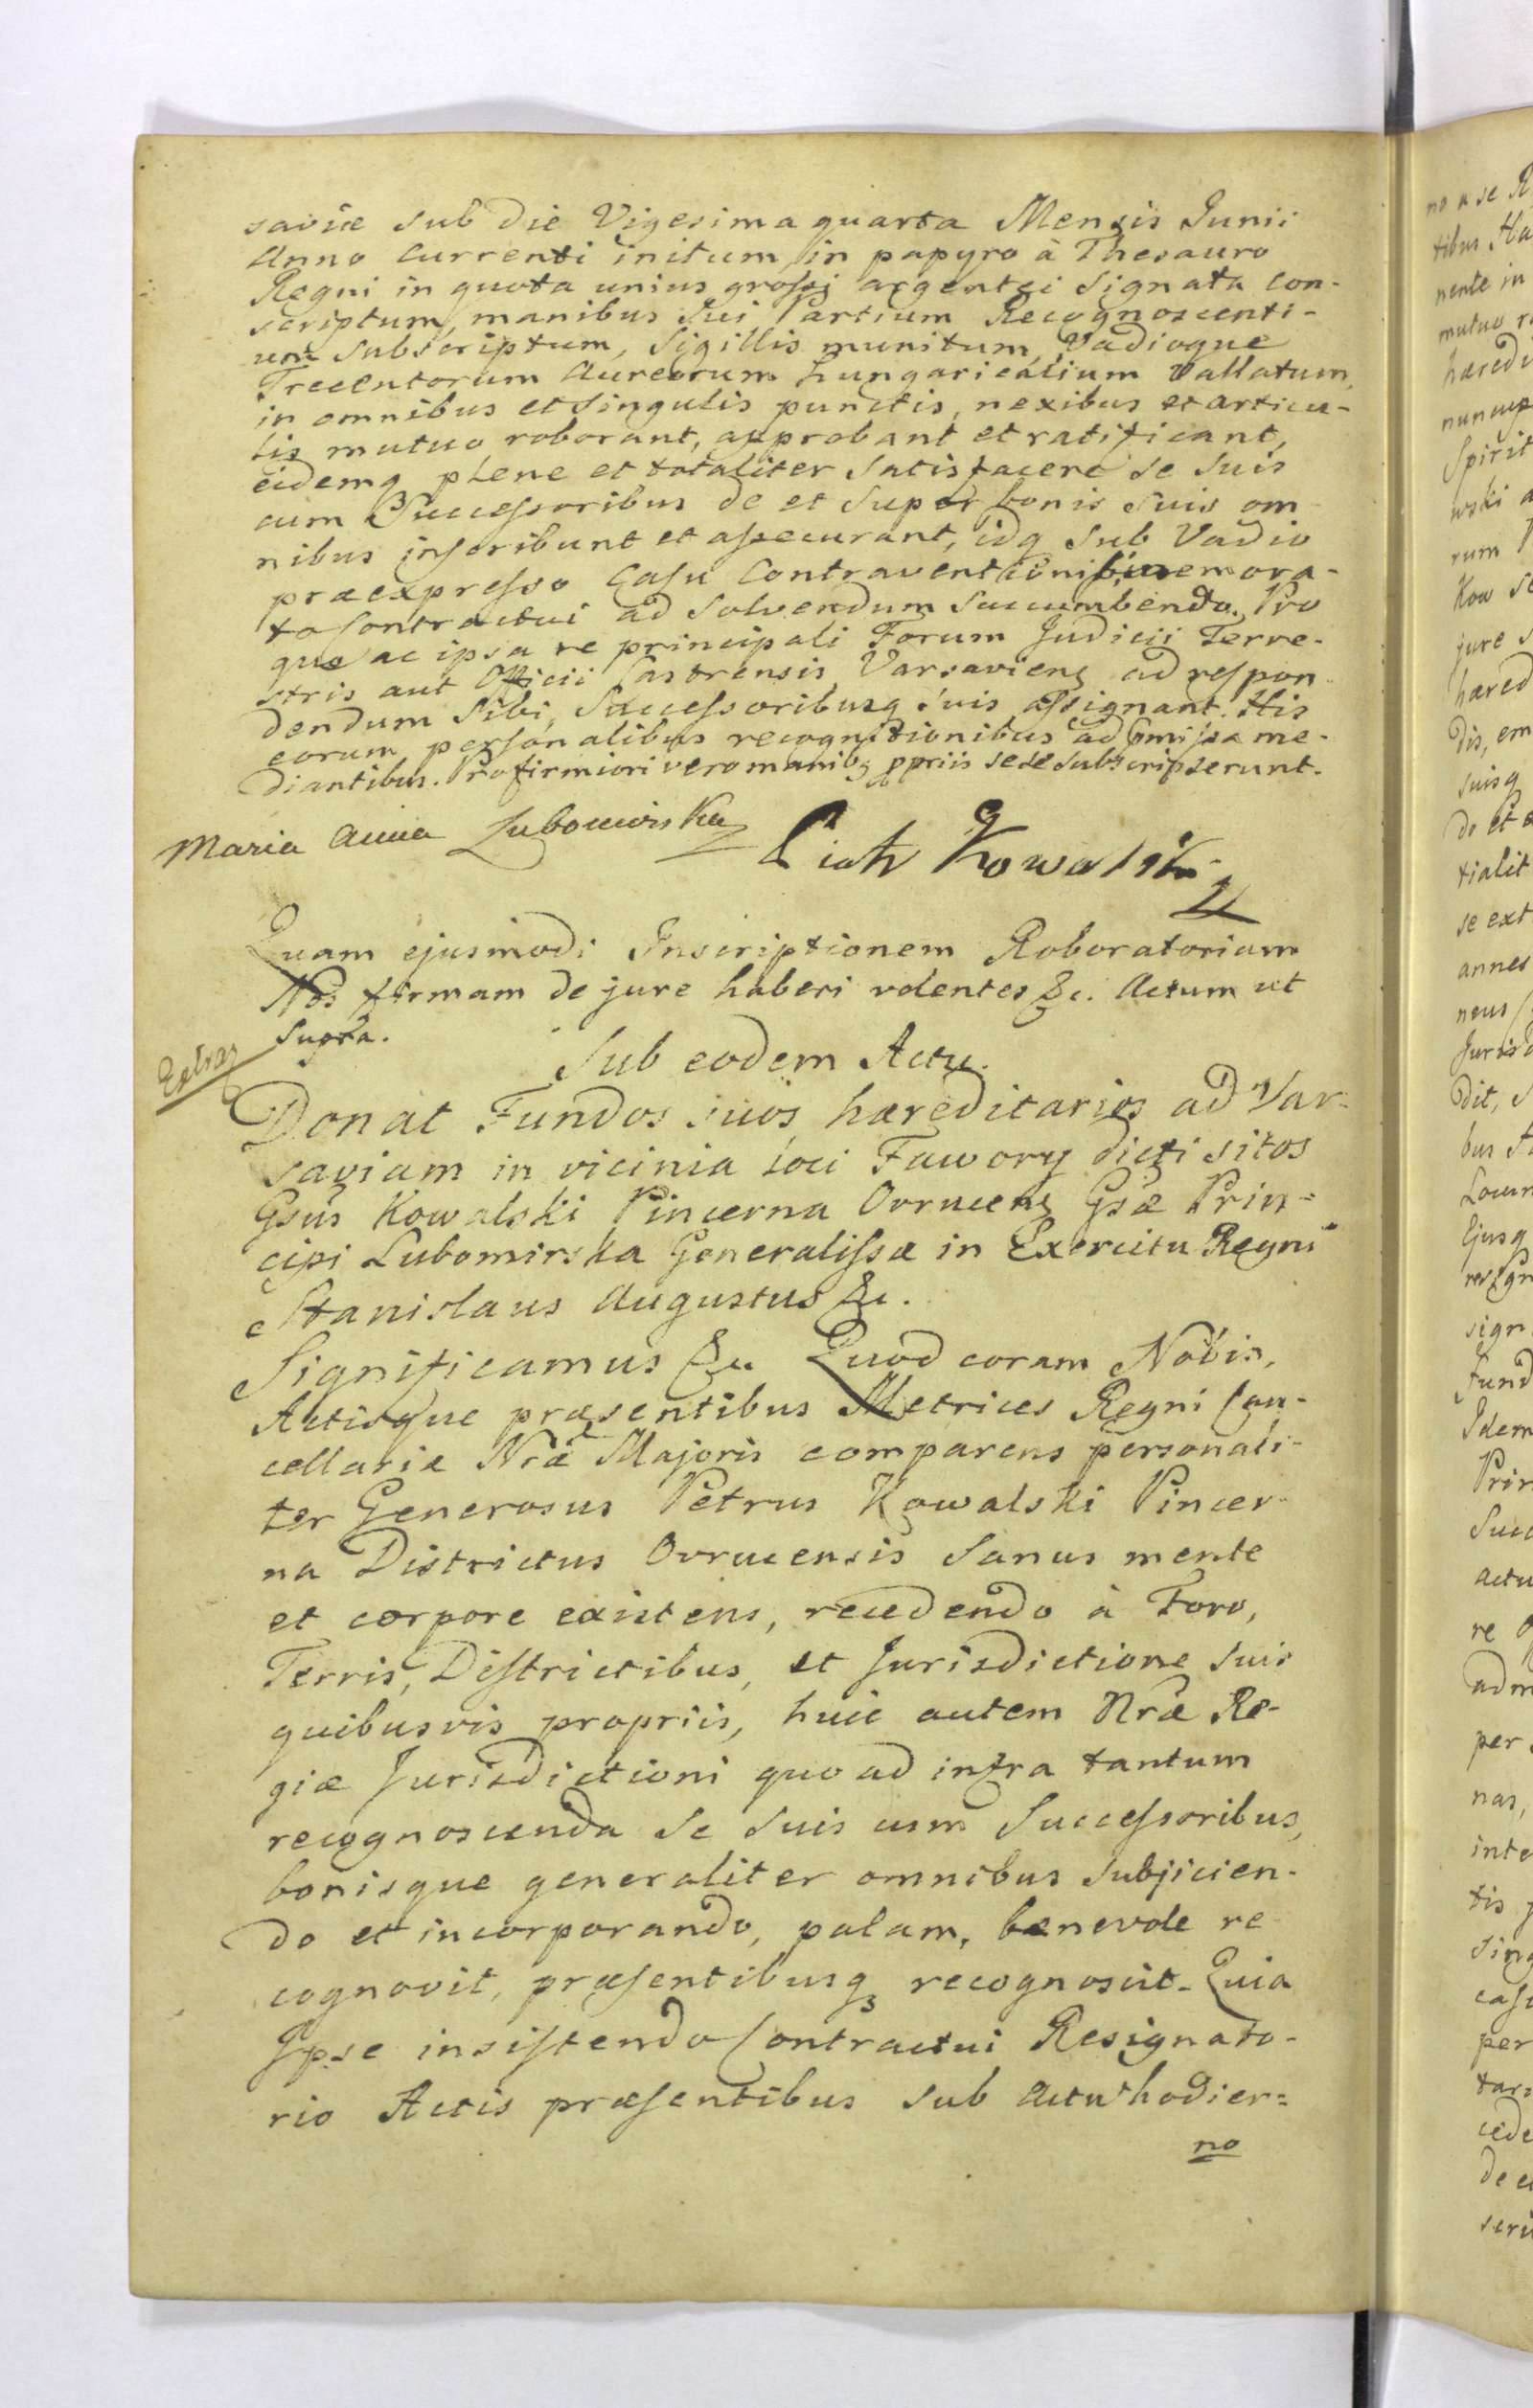 saviæ sub die Vigesima quarta Mensis Junii
Anno Currenti initum in papyro à Thesauro
Regni in quota unius grossi argentei Signata Con-
scriptum, manibus Sui Partium Recognoscenti-
um Subscriptum, Sigillis munitum, Vadioque
Trecentorum Aureorum hungaricalium Vallatum,
in omnibus et Singulis punctis, nexibus et articu-
lis mutuo roborant, approbant et ratificant,
eidemq plene et totaliter Satisfacere se Suis
cum Successoribus de et super bonis Suis om
nibus inscribunt et assecurant, idq sub Vadio
præexpresso Casu Contraventionis memora-
to Contractui ad Solvendum Succumbendo. Pro
quo ac ipsa re principali Forum Judicii Terre-
stris aut Officii Castrensis Varsaviens ad respon
dendum Sibi, Successoribusq suis assignant. His
eorum personalibus recognitionibus ad præmissa me-
diantibus. Pro firmiori vero manibq ppriis sese subscripserunt.
Maria Anna Lubomirska
Piotr Kowalski
Quam ejusmodi Inscriptionem Roboratoriam
Nos firmam de jure haberi volentes &c. Actum ut
Supra.
Sub eodem Actu.
Donat Fundos suos hæreditarios ad Var-
saviam in vicinia loci Fawory dicti sitos
Gsus Kowalski Pincerna Ovruceng Gsæ Prin-
cipi Lubomirska Generalissæ in Exercitu Regni
Stanislaus Augustus &c.
Significamus &c Quod coram Nobis,
Actisque præsentibus Metrices Regni Can-
cellariæ Nræ Majoris comparens personali-
ter Generosus Petrus Kowalski Pincer-
na Districtus Ovrucensis Sanus mente
et corpore existens, recedendo à Foro,
Terris, Districtibus, et Jurisdictione Suis
quibusvis propriis, huic autem Nræ Re-
giæ Jurisdictioni quo ad infra tantum
recognoscenda Se Suis cum Successoribus,
bonisque generaliter omnibus Subjicien-
do et incorporando, palam, benevole re
cognovit, præsentibusq recognoscit. Quia
Ipse insistendo Contractui Resignato-
rio Actis præsentibus sub actu hodier=
no